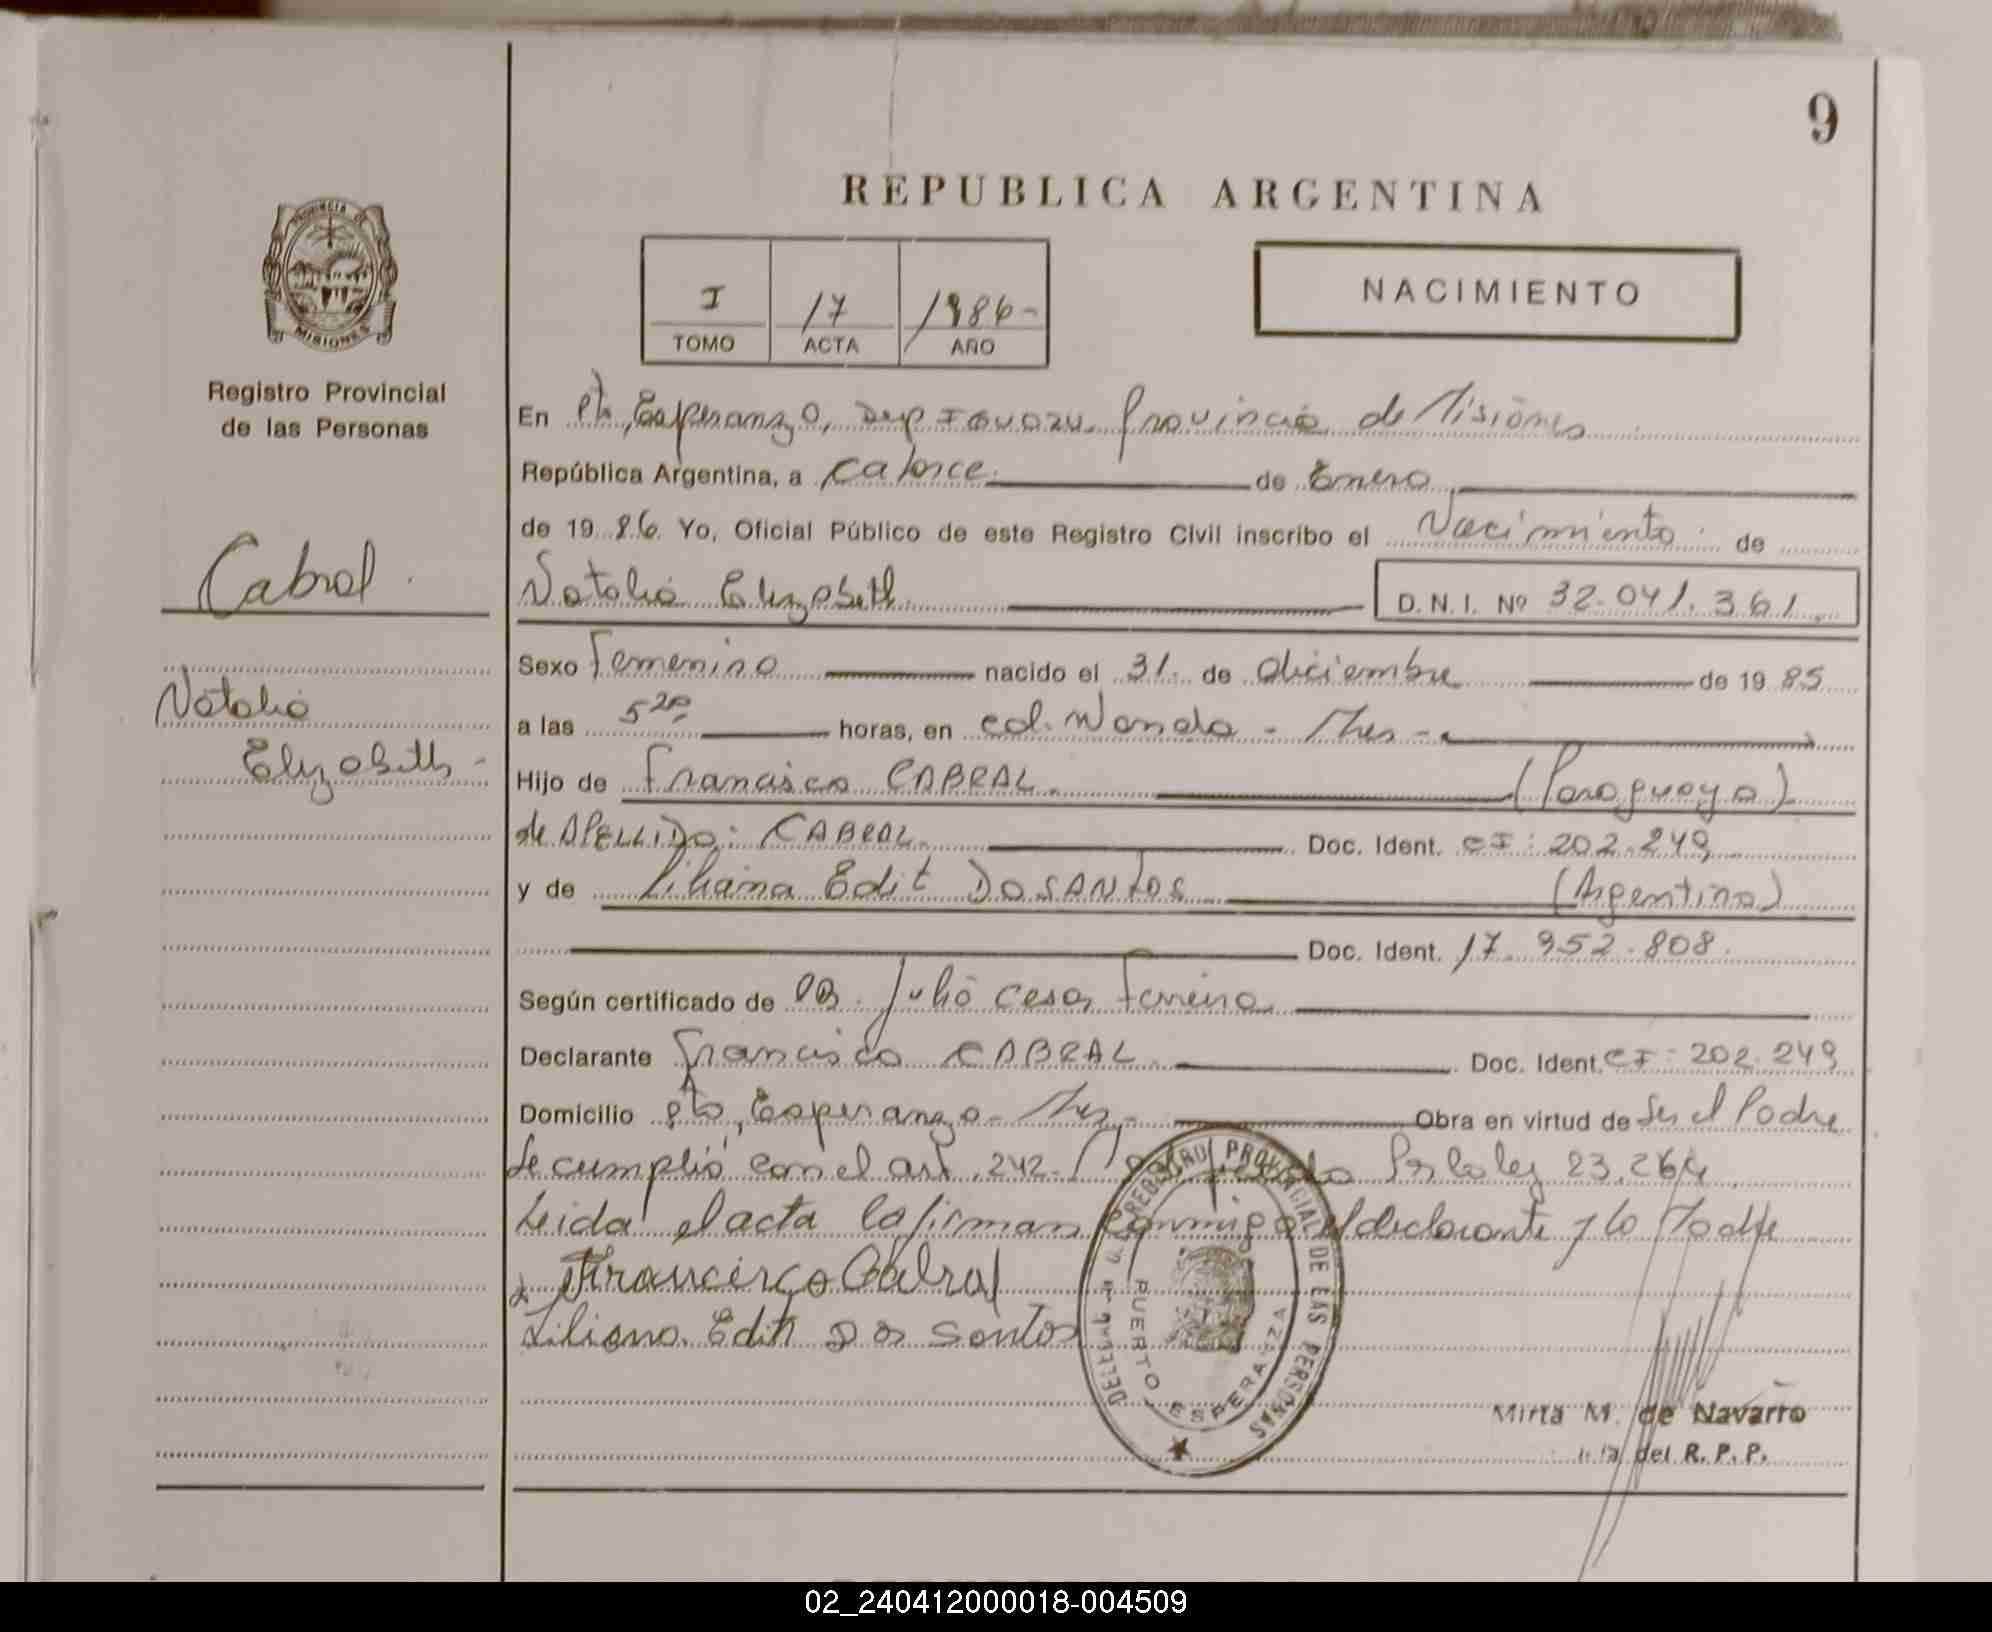 9
REPUBLICA ARGENTINA
PROVINCIA DE
MISIONES
Registro Provincial
de las Personas
I 17 1986-
TOMO ACTA AÑO
NACIMIENTO
En Pto, Esperanza, Dep Iguazu. Provincia de Misiones
República Argentina, a catorce de Enero
de 1986. Yo, Oficial Público de este Registro Civil inscribo el Nacimiento de
Cabral.
Natalia Elizabeth D.N.I. Nº 32.041.361
Sexo Femenino nacido el 31 de diciembre de 1985
Natalia
a las 5 horas, en col. Wanda - Mnes -
Elizabeth -
Hijo de Francisco CABRAL. (Paraguaya)
de APELLIDO: CABRAL. Doc. Ident. CI: 202.249
y de Liliana Edit DOSANTOS (Argentina)
Doc. Ident. 17.952.808.
Según certificado de Julio Cesar Ferreira
Declarante Francisco CABRAL. Doc. Ident. CI: 202.249
Domicilio Pto, Esperanza - Mnes - Obra en virtud de Ser el Padre
Se cumplió con el art. 242. Por la ley 23.264
Leida el acta la firman conmigo el declarante y la Madre
Francisco Cabral
Liliana Edit Dos Santos
REGISTRO PROVINCIAL DE LAS PERSONAS
PUERTO ESPERANZA
Mirta M. de Navarro
del R. P. P.
02_240412000018-004509